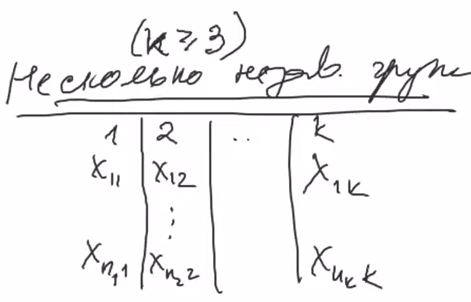 (k ⩾ 3)
Несколько незав. групп
1 2 .. k
x₁₁ x₁₂ x₁ₖ
⋮
xₙ₁₁ xₙ₂₂ xₙₖk